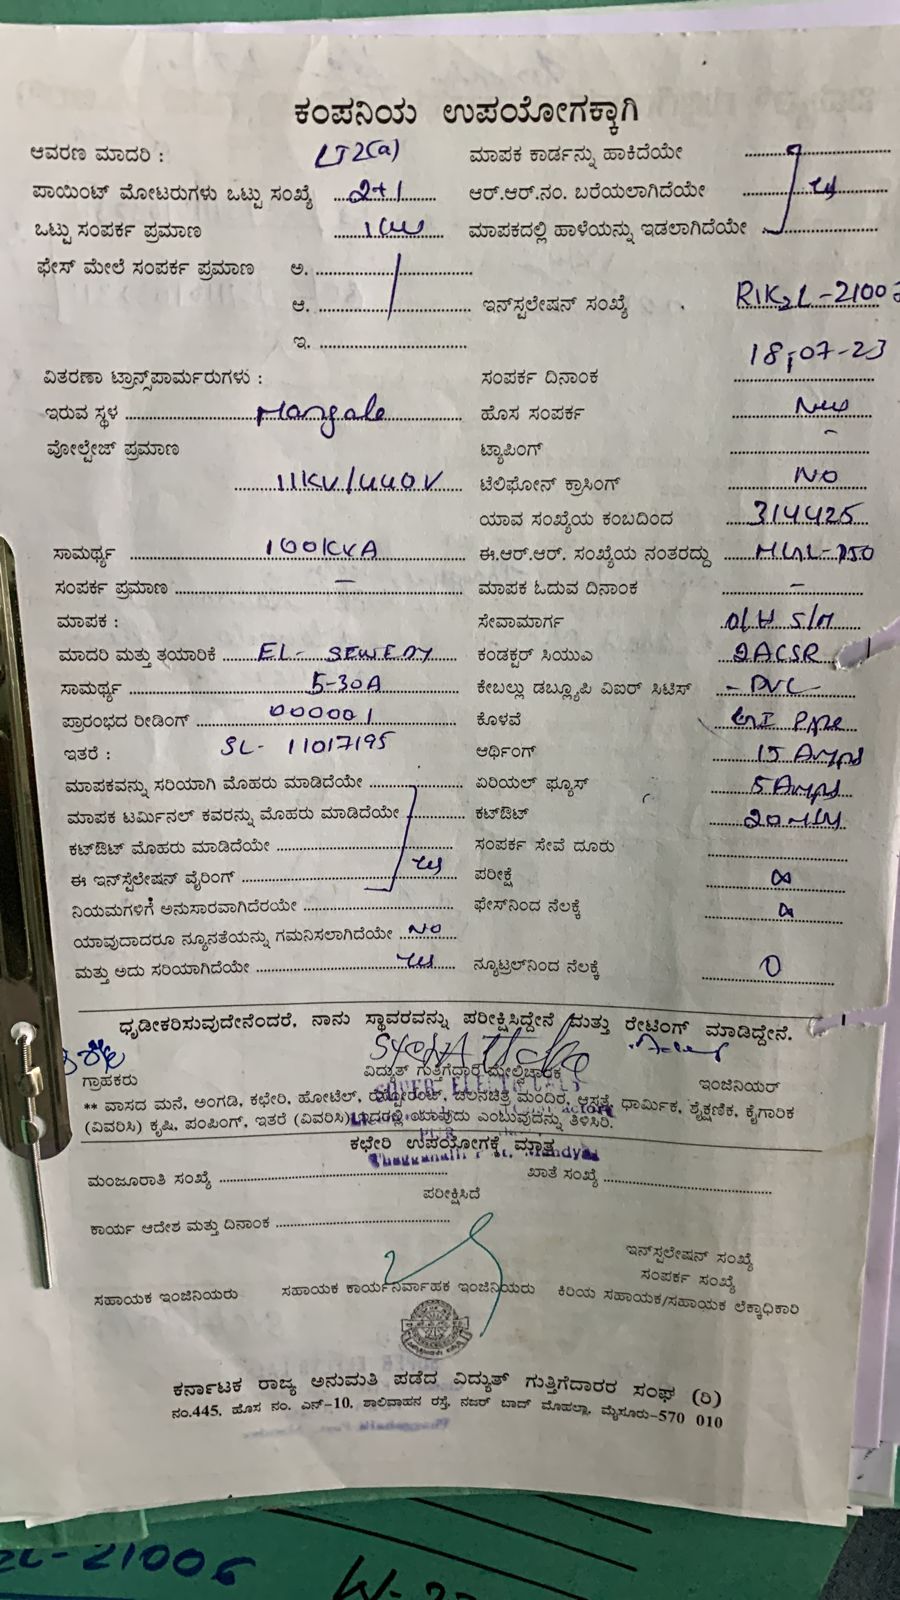 ಕಂಪನಿಯ ಉಪಯೋಗಕ್ಕಾಗಿ
ಆವರಣ ಮಾದರಿ : LT2(a)
ಪಾಯಿಂಟ್ ಮೋಟರುಗಳು ಒಟ್ಟು ಸಂಖ್ಯೆ 2+1
ಒಟ್ಟು ಸಂಪರ್ಕ ಪ್ರಮಾಣ
ಫೇಸ್ ಮೇಲೆ ಸಂಪರ್ಕ ಪ್ರಮಾಣ ಅ.
ಆ.
ಇ.
ವಿತರಣಾ ಟ್ರಾನ್ಸ್‌ಪಾರ್ಮರುಗಳು :
ಇರುವ ಸ್ಥಳ Mangale
ವೋಲ್ಟೇಜ್ ಪ್ರಮಾಣ
11KV/440V
ಸಾಮರ್ಥ್ಯ 100KVA
ಸಂಪರ್ಕ ಪ್ರಮಾಣ –
ಮಾಪಕ :
ಮಾದರಿ ಮತ್ತು ತಯಾರಿಕೆ EL- SEWEDY
ಸಾಮರ್ಥ್ಯ 5-30A
ಪ್ರಾರಂಭದ ರೀಡಿಂಗ್ 000001
ಇತರೆ : SL- 11017195
ಮಾಪಕವನ್ನು ಸರಿಯಾಗಿ ಮೊಹರು ಮಾಡಿದೆಯೇ
ಮಾಪಕ ಟರ್ಮಿನಲ್ ಕವರನ್ನು ಮೊಹರು ಮಾಡಿದೆಯೇ
ಕಟ್‌ಔಟ್ ಮೊಹರು ಮಾಡಿದೆಯೇ
ಈ ಇನ್‌ಸ್ಟಲೇಷನ್ ವೈರಿಂಗ್ yes
ನಿಯಮಗಳಿಗೆ ಅನುಸಾರವಾಗಿದೆರಯೇ
ಯಾವುದಾದರೂ ನ್ಯೂನತೆಯನ್ನು ಗಮನಿಸಲಾಗಿದೆಯೇ NO
ಮತ್ತು ಅದು ಸರಿಯಾಗಿದೆಯೇ yes
ಮಾಪಕ ಕಾರ್ಡನ್ನು ಹಾಕಿದೆಯೇ
ಆರ್.ಆರ್.ನಂ. ಬರೆಯಲಾಗಿದೆಯೇ yes
ಮಾಪಕದಲ್ಲಿ ಹಾಳೆಯನ್ನು ಇಡಲಾಗಿದೆಯೇ
ಇನ್‌ಸ್ಟಲೇಷನ್ ಸಂಖ್ಯೆ
ಸಂಪರ್ಕ ದಿನಾಂಕ 18-07-23
ಹೊಸ ಸಂಪರ್ಕ New
ಟ್ಯಾಪಿಂಗ್ –
ಟೆಲಿಫೋನ್ ಕ್ರಾಸಿಂಗ್ NO
ಯಾವ ಸಂಖ್ಯೆಯ ಕಂಬದಿಂದ 314425
ಈ.ಆರ್.ಆರ್. ಸಂಖ್ಯೆಯ ನಂತರದ್ದು
ಮಾಪಕ ಓದುವ ದಿನಾಂಕ –
ಸೇವಾಮಾರ್ಗ O/H S/M
ಕಂಡಕ್ಟರ್ ಸಿಯುಎ 2ACSR
ಕೇಬಲ್ಲು ಡಬ್ಲ್ಯೂಪಿ ವಿಐರ್ ಸಿಟಿಸ್ - PVC -
ಕೊಳವೆ GI Pipe
ಆರ್ಥಿಂಗ್ 15 Amps
ಏರಿಯಲ್ ಫ್ಯೂಸ್ 5 Amps
ಕಟ್‌ಔಟ್
ಸಂಪರ್ಕ ಸೇವೆ ದೂರು
ಪರೀಕ್ಷೆ
ಫೇಸ್‌ನಿಂದ ನೆಲಕ್ಕೆ
ನ್ಯೂಟ್ರಲ್‌ನಿಂದ ನೆಲಕ್ಕೆ 0
ಧೃಡೀಕರಿಸುವುದೇನೆಂದರೆ, ನಾನು ಸ್ಥಾವರವನ್ನು ಪರೀಕ್ಷಿಸಿದ್ದೇನೆ ಮತ್ತು ರೇಟಿಂಗ್ ಮಾಡಿದ್ದೇನೆ.
ಗ್ರಾಹಕರು ವಿದ್ಯುತ್ ಗುತ್ತಿಗೆದಾರ ಮೇಲ್ವಿಚಾರಕ ಇಂಜಿನಿಯರ್
** ವಾಸದ ಮನೆ, ಅಂಗಡಿ, ಕಛೇರಿ, ಹೋಟೆಲ್, ರೆಸ್ಟೋರೆಂಟ್, ಚಲನಚಿತ್ರ ಮಂದಿರ, ಆಸ್ಪತ್ರೆ, ಧಾರ್ಮಿಕ, ಶೈಕ್ಷಣಿಕ, ಕೈಗಾರಿಕ
(ವಿವರಿಸಿ) ಕೃಷಿ, ಪಂಪಿಂಗ್, ಇತರೆ (ವಿವರಿಸಿ) ಇದರಲ್ಲಿ ಯಾವುದು ಎಂಬುವುದನ್ನು ತಿಳಿಸಿರಿ.
ಕಛೇರಿ ಉಪಯೋಗಕ್ಕೆ ಮಾತ್ರ
ಮಂಜೂರಾತಿ ಸಂಖ್ಯೆ ಖಾತೆ ಸಂಖ್ಯೆ
ಪರೀಕ್ಷಿಸಿದೆ
ಕಾರ್ಯ ಆದೇಶ ಮತ್ತು ದಿನಾಂಕ
ಇನ್‌ಸ್ಟಲೇಷನ್ ಸಂಖ್ಯೆ
ಸಂಪರ್ಕ ಸಂಖ್ಯೆ
ಸಹಾಯಕ ಇಂಜಿನಿಯರು ಸಹಾಯಕ ಕಾರ್ಯನಿರ್ವಾಹಕ ಇಂಜಿನಿಯರು ಕಿರಿಯ ಸಹಾಯಕ/ಸಹಾಯಕ ಲೆಕ್ಕಾಧಿಕಾರಿ
ಕರ್ನಾಟಕ ರಾಜ್ಯ ಅನುಮತಿ ಪಡೆದ ವಿದ್ಯುತ್ ಗುತ್ತಿಗೆದಾರರ ಸಂಘ (ರಿ)
ನಂ.445, ಹೊಸ ನಂ. ಎನ್-10, ಶಾಲಿವಾಹನ ರಸ್ತೆ, ನಜರ್ ಬಾದ್ ಮೊಹಲ್ಲಾ, ಮೈಸೂರು-570 010
2L-21006